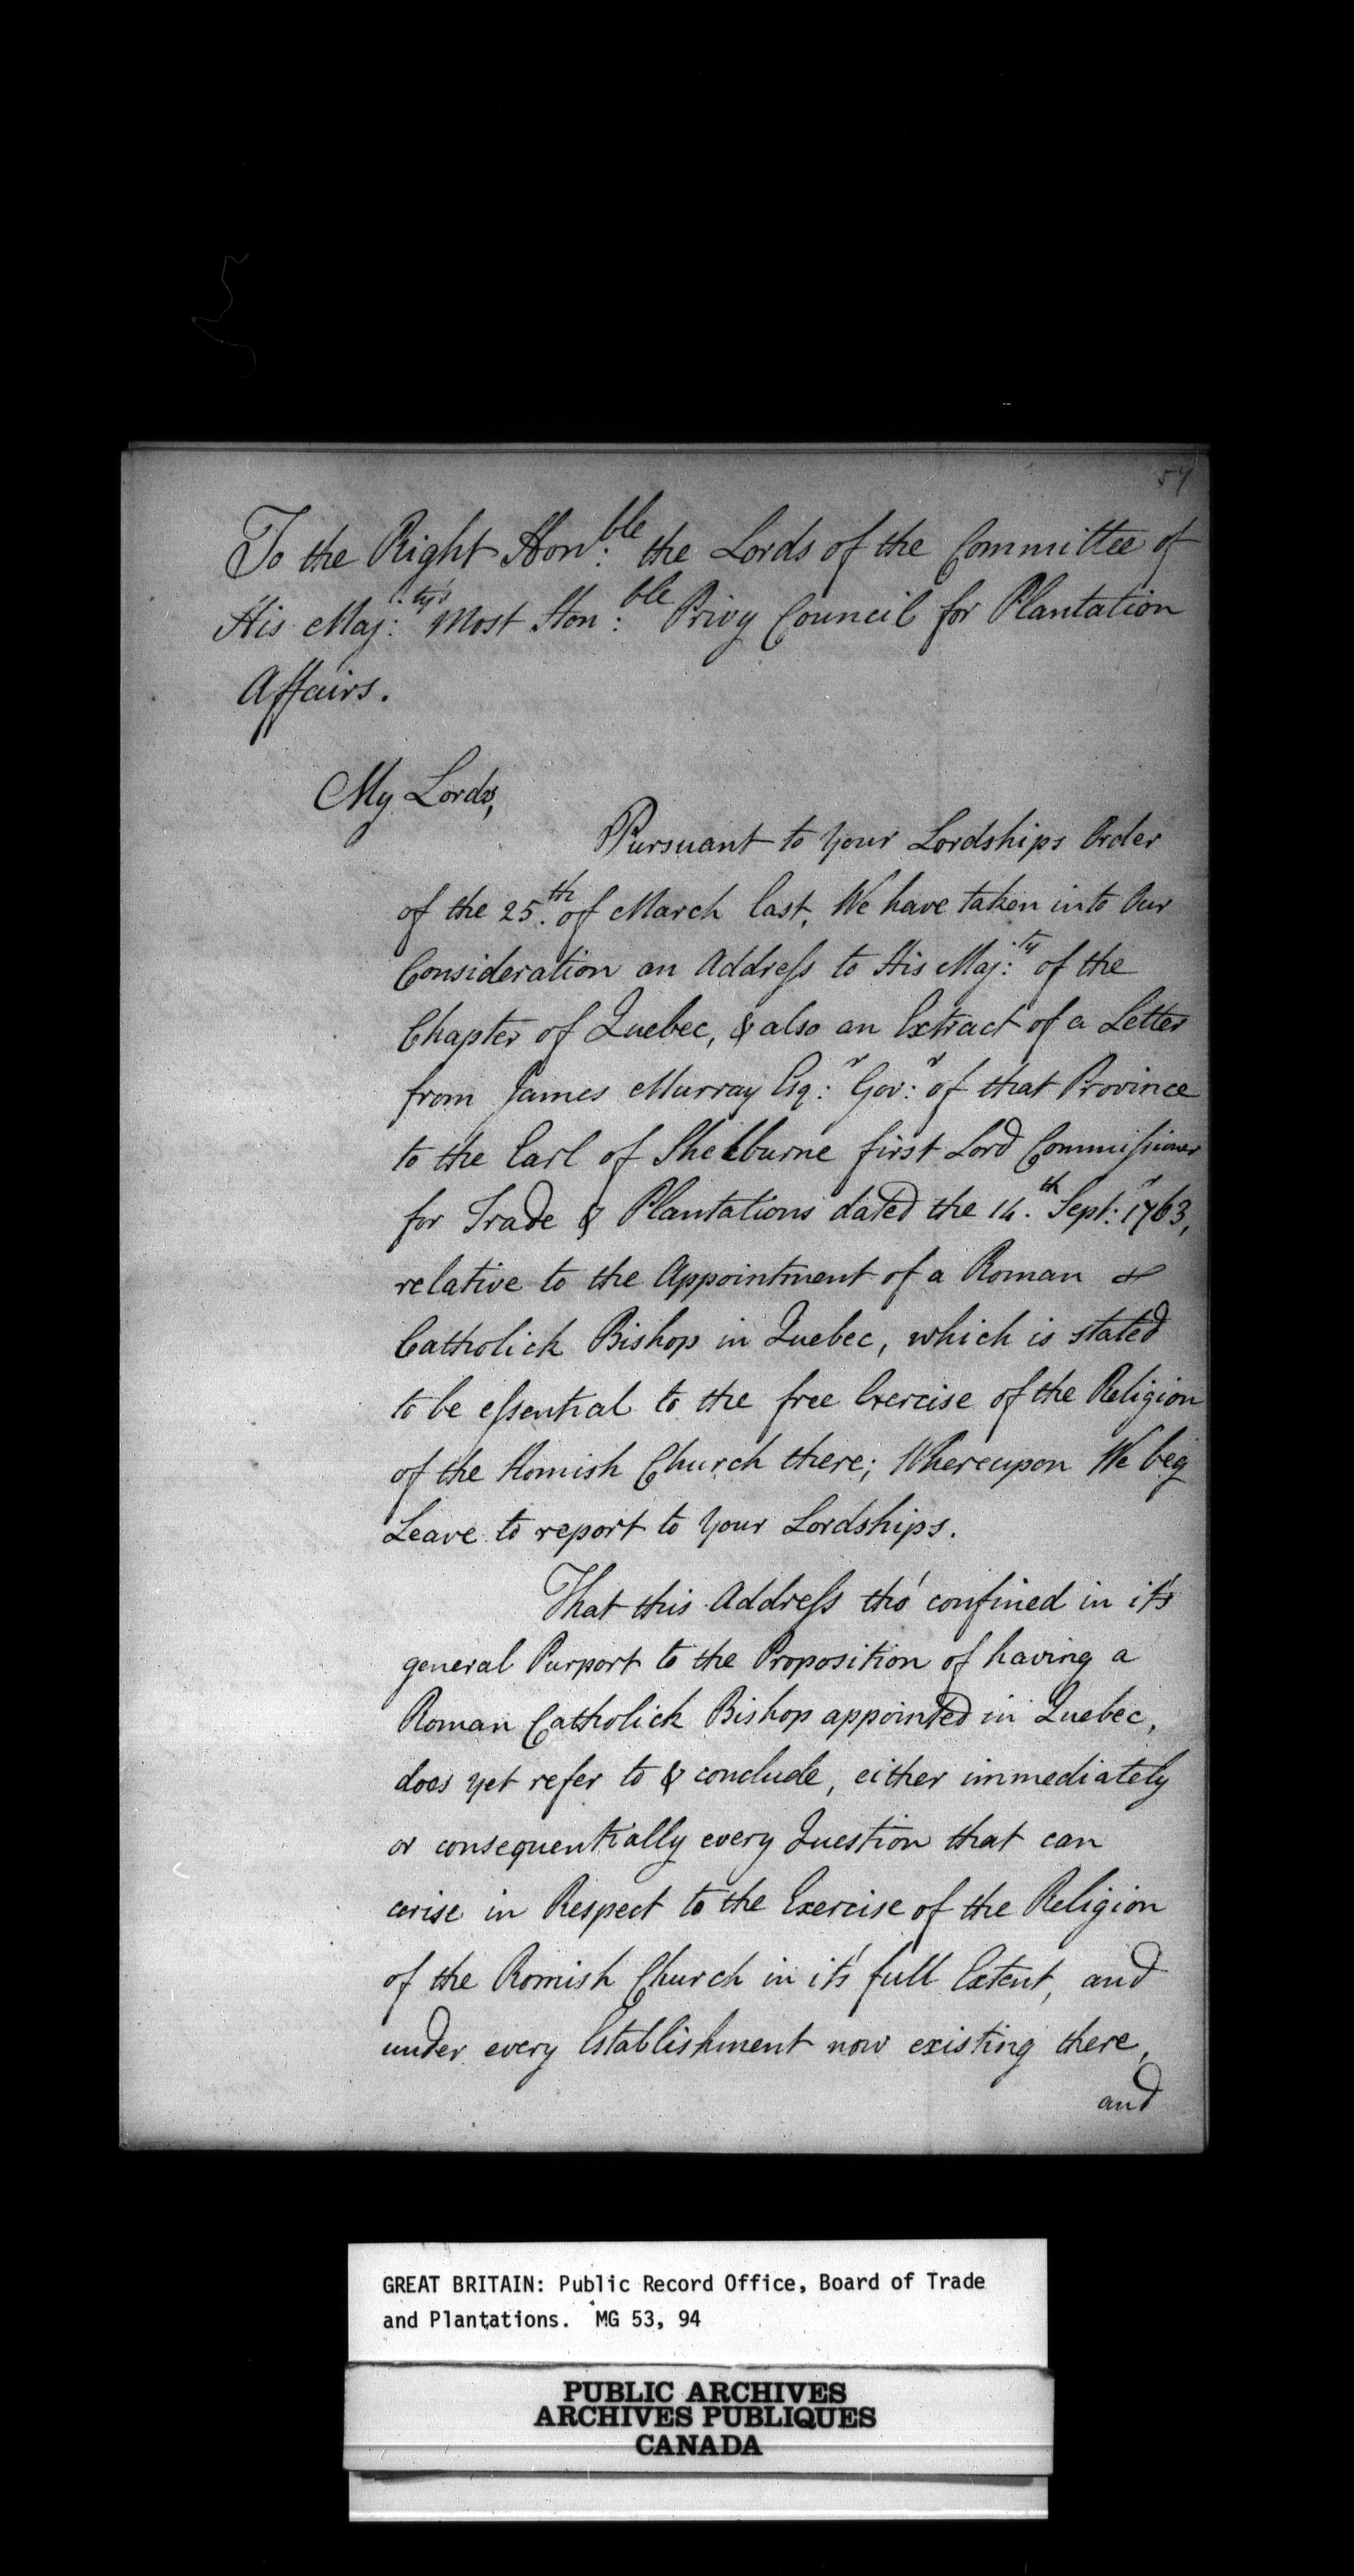 54
To the Right Hon:ble the Lords of the Committee of
His Maj:ty's Most Hon:ble Privy Council for Plantation
Affairs.
My Lords,
Pursuant to Your Lordships Order
of the 25.th of March last, We have taken into Our
Consideration an Address to His Maj:ty of the
Chapter of Quebec, & also an Extract of a Letter
from James Murray Esq:r Gov:r of that Province
to the Earl of Shelburne first Lord Commissioner
for Trade & Plantations dated the 14.th Sept:r 1763,
relative to the Appointment of a Roman
Catholick Bishop in Quebec, which is stated
to be essential to the free Exercise of the Religion
of the Romish Church there; Whereupon We beg
Leave to report to Your Lordships.
That this Address tho' confined in it's
general Purport to the Proposition of having a
Roman Catholick Bishop appointed in Quebec,
does yet refer to & conclude, either immediately
or consequentially every Question that can
arise in Respect to the Exercise of the Religion
of the Romish Church in it's full Extent, and
under every Establishment now existing there,
and
GREAT BRITAIN: Public Record Office, Board of Trade
and Plantations. MG 53, 94
PUBLIC ARCHIVES
ARCHIVES PUBLIQUES
CANADA